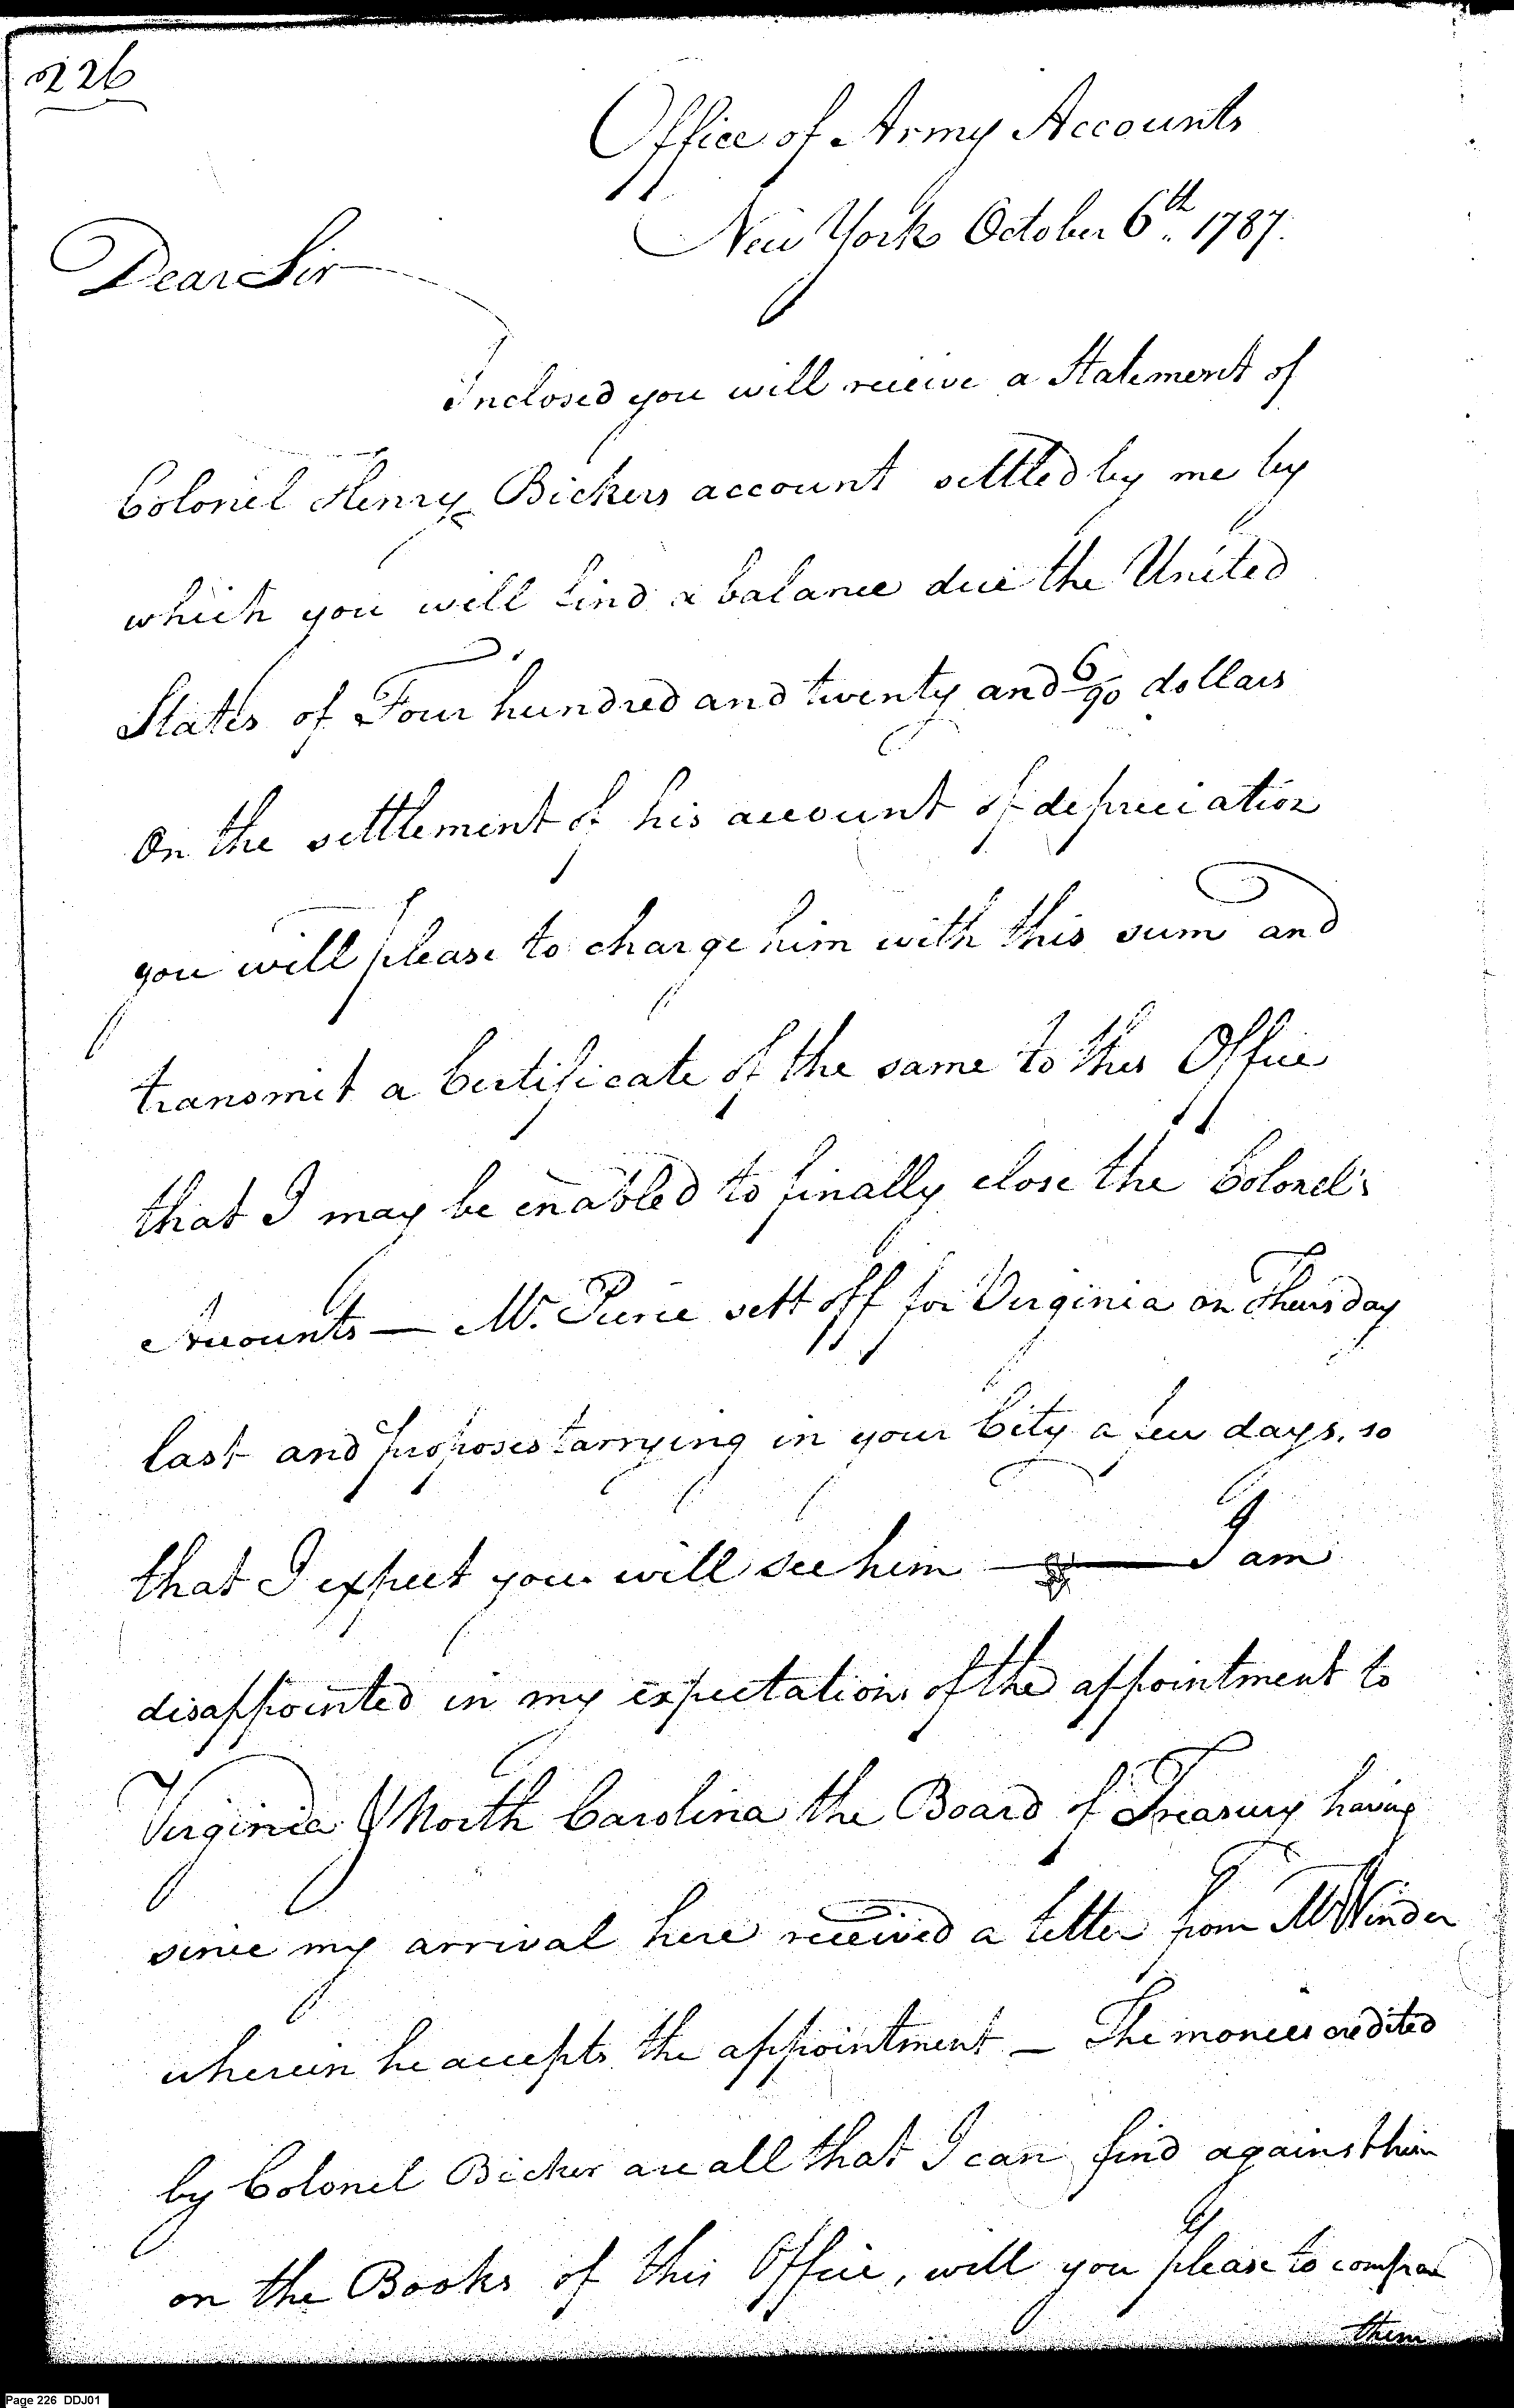 226
Office of Army Accounts
New York October 6th 1787.
Dear Sir
Inclosed you will receive a Statement of
Colonel Henry Bickers account settled by me by
which you will find a balance due the United
States of Four hundred and twenty and 6/90 dollars
On the settlement of his account of depreciation
you will please to charge him with this sum and
transmit a Certificate of the same to this Office
that I may be enabled to finally close the Colonel's
Accounts — Mr. Pierce sett off for Virginia on Thursday
last and proposes tarrying in your City a few days, so
that I expect you will see him — I am
disappointed in my expectations of the appointment to
Virginia & North Carolina the Board of Treasury having
since my arrival here received a letter from Mr Winder
wherein he accepts the appointment — The monies credited
by Colonel Bicker are all that I can find against him
on the Books of this Office, will you please to compare
them
Page 226 DDJ01